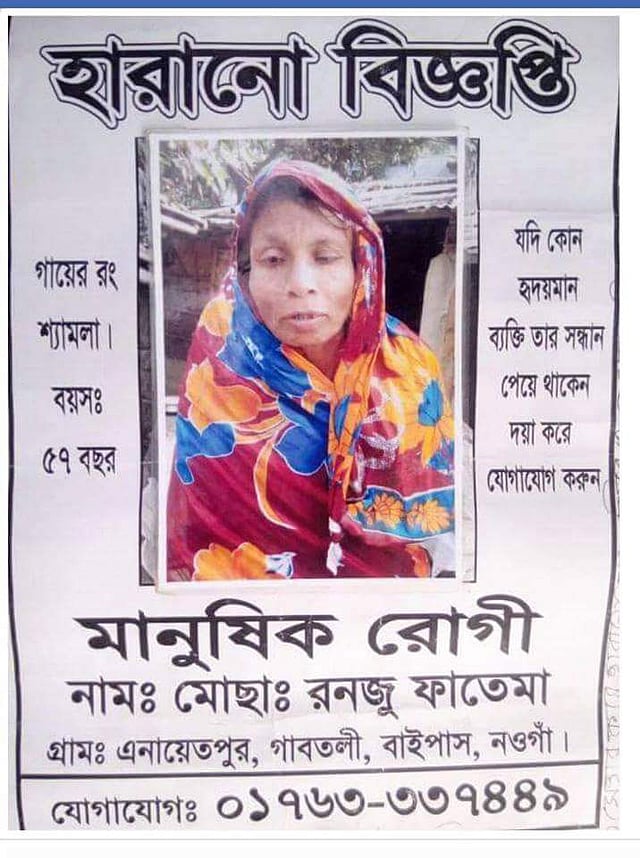 হারানো বিজ্ঞপ্তি
গায়ের রং
শ্যামলা।
বয়সঃ
৫৭ বছর
যদি কোন
হৃদয়মান
ব্যক্তি তার সন্ধান
পেয়ে থাকেন
দয়া করে
যোগাযোগ করুন
মানুষিক রোগী
নামঃ মোছাঃ রনজু ফাতেমা
গ্রামঃ এনায়েতপুর, গাবতলী, বাইপাস, নওগাঁ।
যোগাযোগঃ ০১৭৬৩-৩৩৭৪৪৯